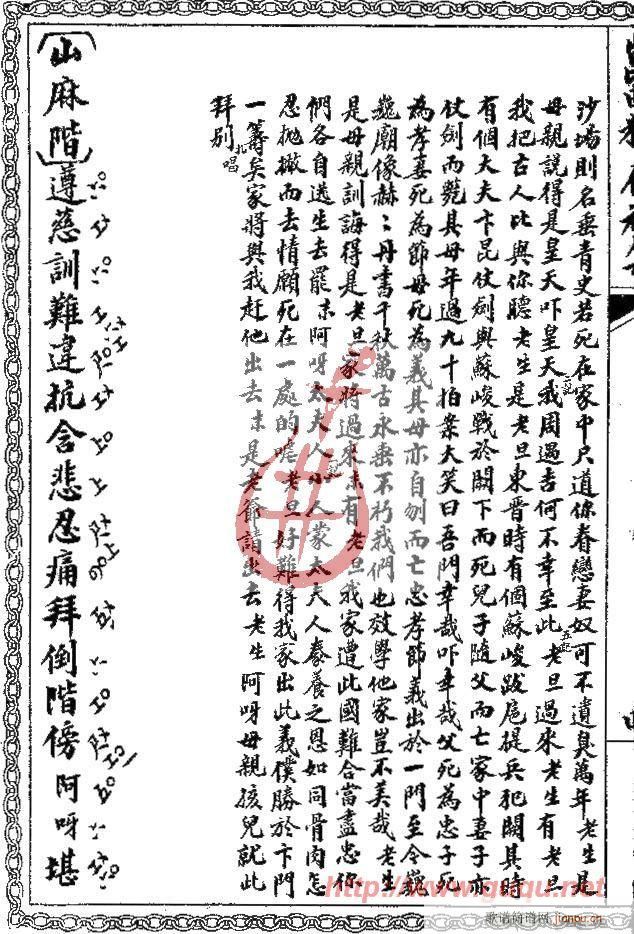 沙場則名垂青史若死在家中只道你眷戀妻奴可不遺臭萬年老生是
母親說得是皇天吓皇天我周遇吉何不幸至此老旦過來老生有老旦
我把古人比與你聽老生是老旦東晉時有個蘇峻跋扈提兵犯闕其時
有個大夫卞昆仗劍與蘇峻戰於闕下而死兒子隨父而亡家中妻子亦
仗劍而薨其母年過九十拍案大笑曰吾門幸哉吓幸哉父死為忠子死
為孝妻死為節母死為義其母亦自刎而亡忠孝節義出於一門至今巍
巍廟像赫赫丹書千秋萬古永垂不朽我們也效學他家豈不美哉老生
是母親訓誨得是老旦家將過來末有老旦我家遭此國難合當盡忠你
們各自逃生去罷末阿呀太夫人小人蒙太夫人豢養之恩如同骨肉怎
忍拋撇而去情願死在一處的嗄老旦好難得我家出此義僕勝於卞門
一籌矣家將與我赶他出去末是老爺請出去老生阿呀母親孩兒就此
拜別
唱
山麻階 遵慈訓難違抗含悲忍痛拜倒階傍阿呀堪
http://www.guqu.net
歌谱简谱网
jianpu.cn